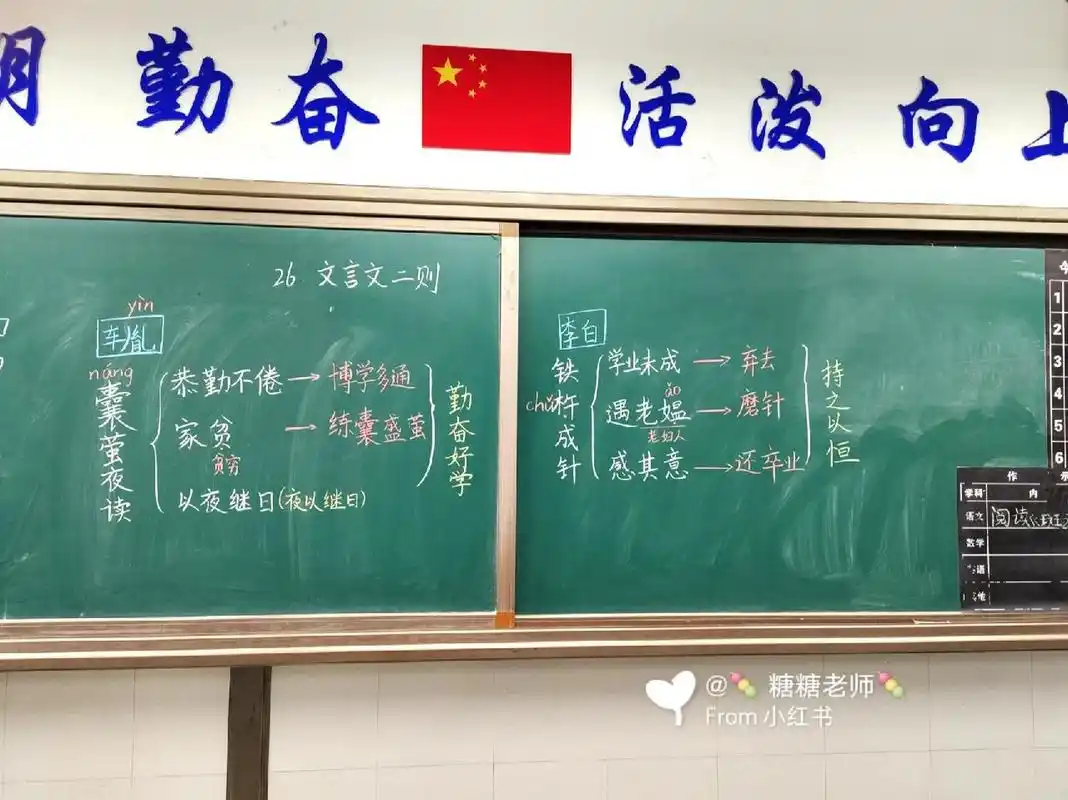 勤奋 活泼 向上
26 文言文二则
yìn
车胤
náng
囊萤夜读
恭勤不倦→博学多通
家贫→练囊盛萤
贫穷
以夜继日(夜以继日)
勤奋好学
李白
chǔ
铁杵成针
学业未成→弃去
ǎo
遇老媪→磨针
老妇人
感其意→还卒业
持之以恒
1
2
3
4
5
6
作
学科 内
语文 阅读
数学
@糖糖老师
From 小红书